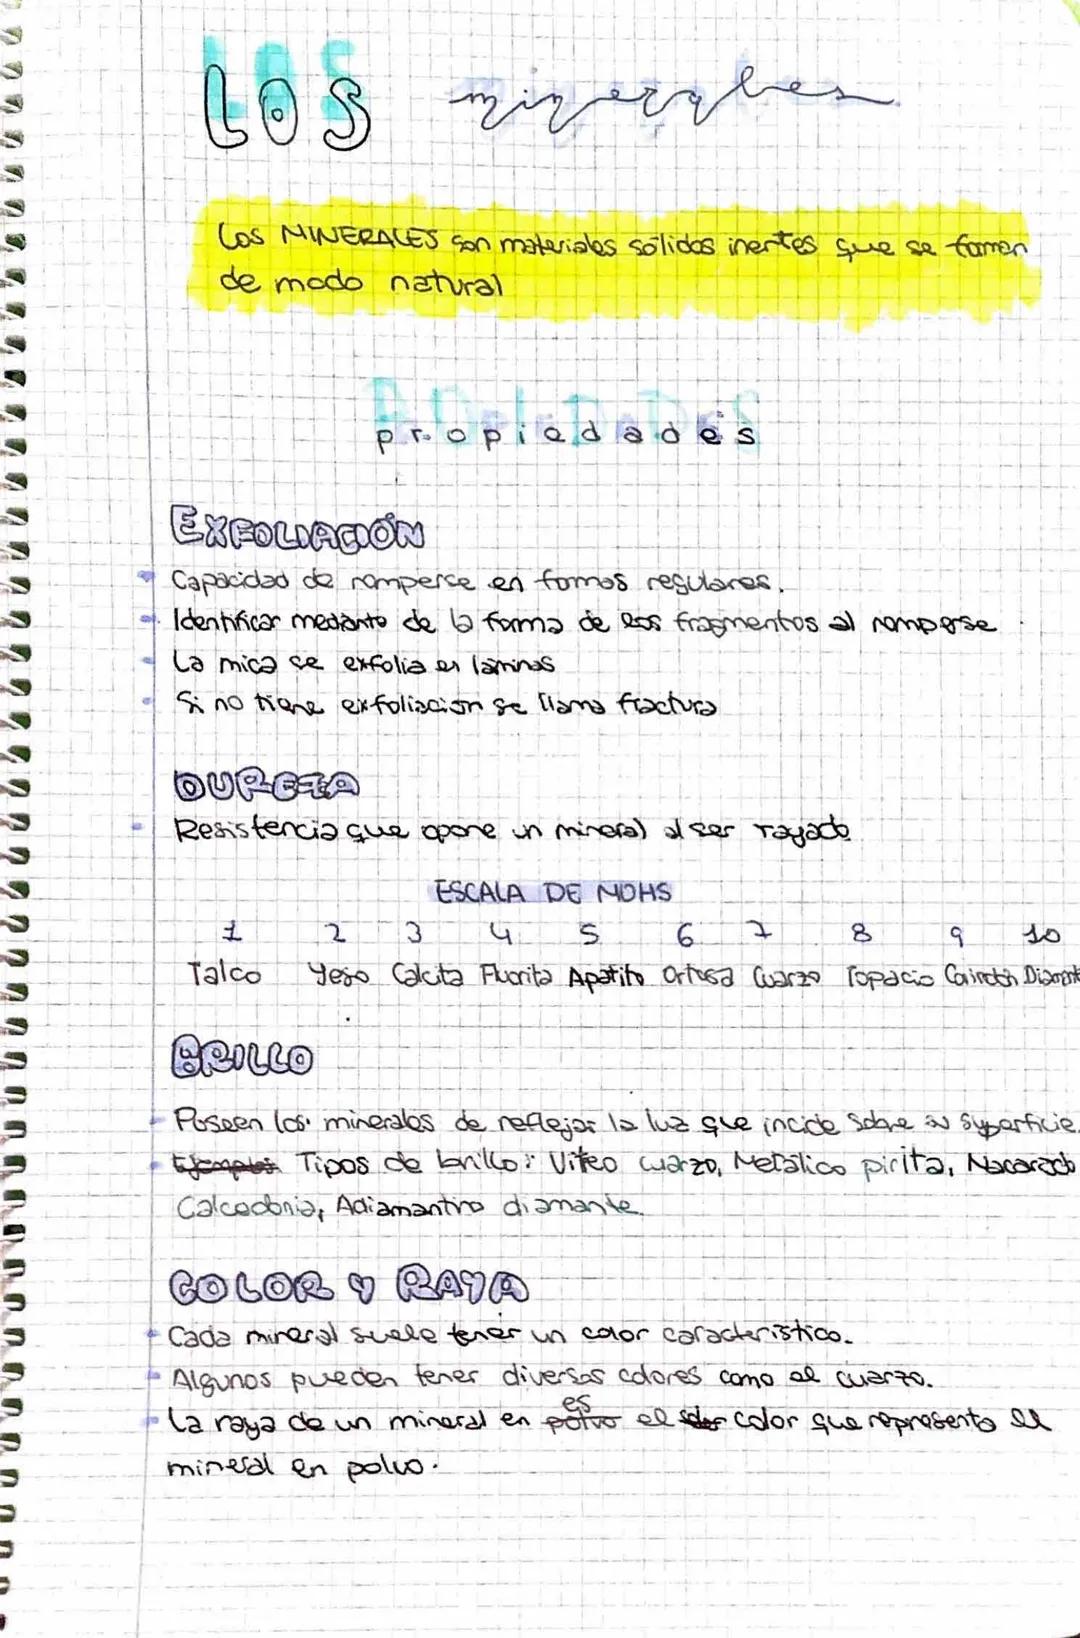 LOS minerales
Los MINERALES son materiales sólidos inertes que se forman
de modo natural
propiedades
EXFOLIACIÓN
Capacidad de romperse en formas regulares.
Identificar mediante de la forma de los fragmentos al romperse
La mica se exfolia en láminas
Si no tiene exfoliación se llama fractura
DUREZA
Resistencia que opone un mineral al ser rayado
ESCALA DE MOHS
1 2 3 4 5 6 7 8 9 10
Talco Yeso Calcita Fluorita Apatito Ortosa Cuarzo Topacio Corindón Diamante
BRILLO
Poseen los minerales de reflejar la luz que incide sobre su superficie.
Ejemplos Tipos de brillo: Viteo cuarzo, Metálico pirita, Nacarado
Calcedonia, Adiamantino diamante.
COLOR Y RAYA
Cada mineral suele tener un color característico.
Algunos pueden tener diversos colores como el cuarzo.
La raya de un mineral en polvo es el color que representa el
mineral en polvo.